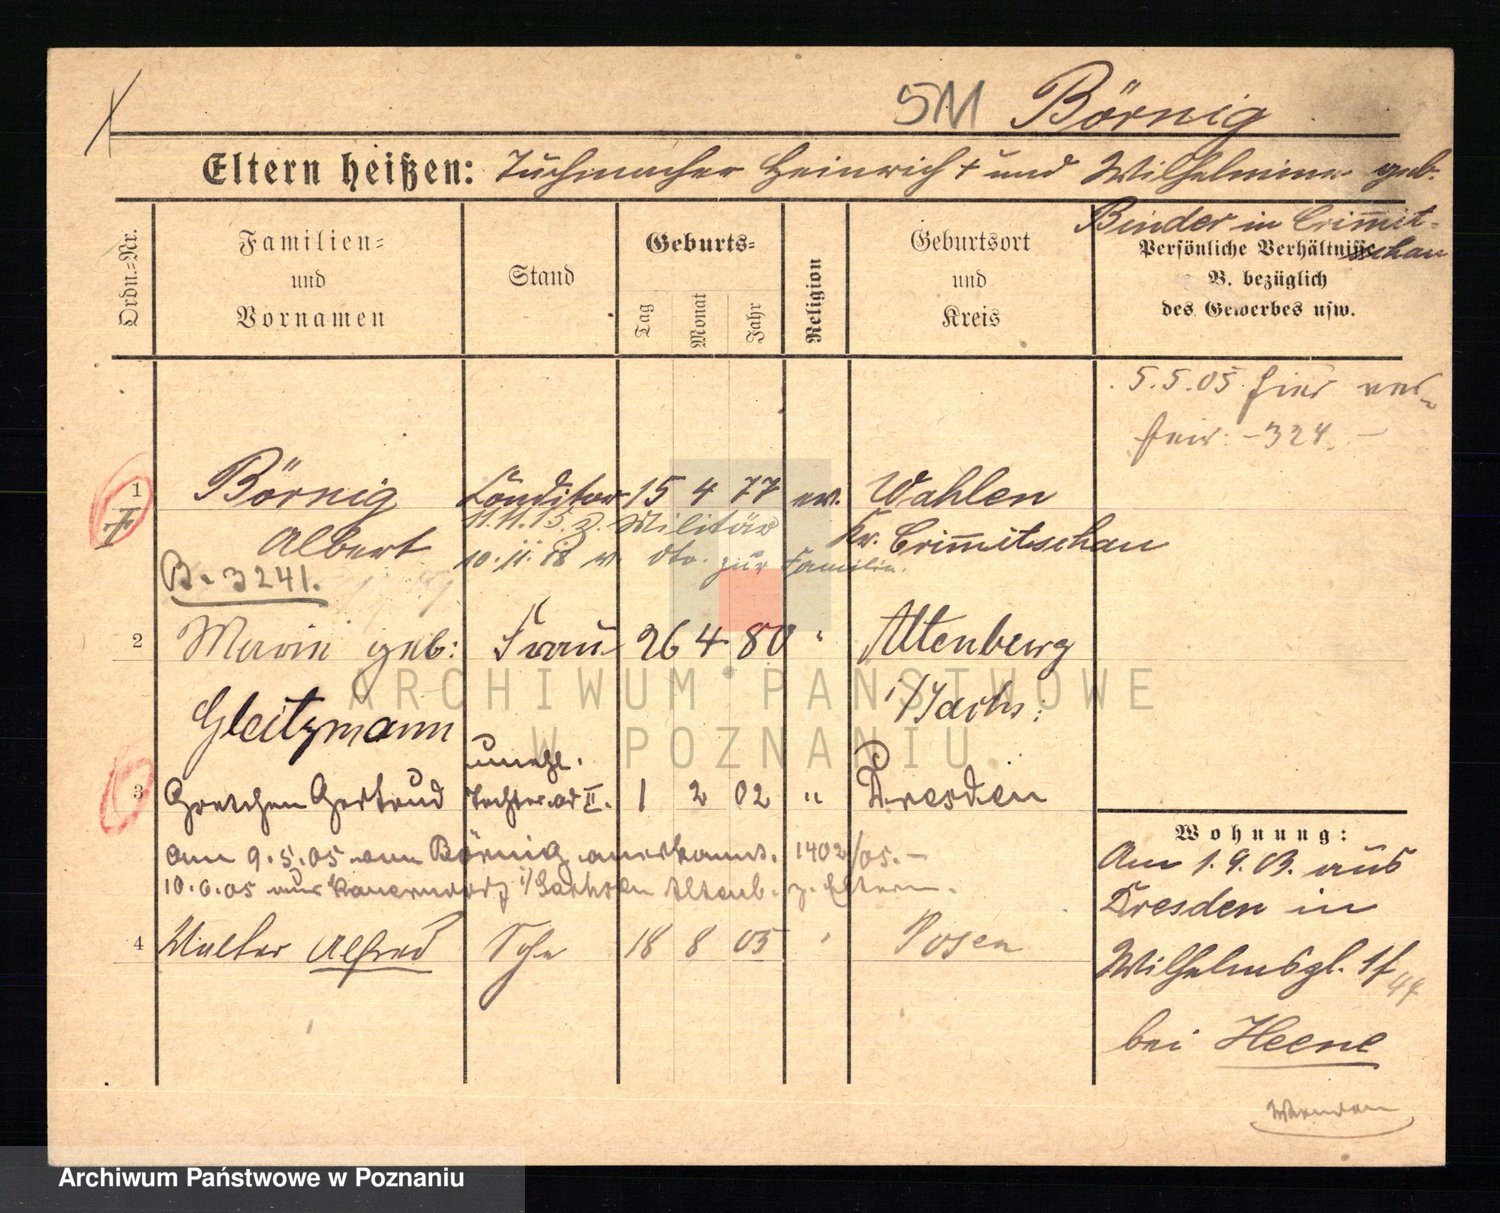 5M Börnig
Eltern heißen: Tuchmacher Heinrich † und Wilhelmine geb.
Binder in Crimmit-
schau
Ordn.=Nr.
Familien=
und
Vornamen
Stand
Geburts=
Tag
Monat
Jahr
Religion
Geburtsort
und
Kreis
Persönliche Verhältnisse
B. bezüglich
des Gewerbes usw.
5.5.05 hier ver-
heir. - 324. -
1 Börnig Conditor 15 4 77 ev. Wahlen
II Albert Kr. Crimmitschau
11.11.15 z. Militär
10.11.18 v. dto. zur Familie.
B. 3241.
2 Marie geb: Frau 26 4 80 " Altenberg
Gleitzmann i/Sachs:
unehl.
3 Gretchen Gertrud Tochter ad II. 1 2 02 " Dresden
am 9.5.05 von Börnig anerkannt. 1402/05. -
10.6.05 aus i/Sachsen Altenb. z. Eltern.
4 Walter Alfred Sohn 18 8 05 " Posen
Wohnung:
Am 1.9.03. aus
Dresden in
Wilhelmspl. 17
bei Heene
Wenden
ARCHIWUM PAŃSTWOWE
W POZNANIU
Archiwum Państwowe w Poznaniu